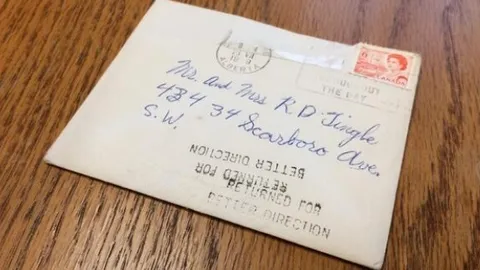 ALBERTA
CANADA
THE
Mr. And Mrs K D Tingle
434 34 Scarboro Ave.
S.W.
BETTER DIRECTION
RETURNED FOR
RETURNED FOR
BETTER DIRECTION